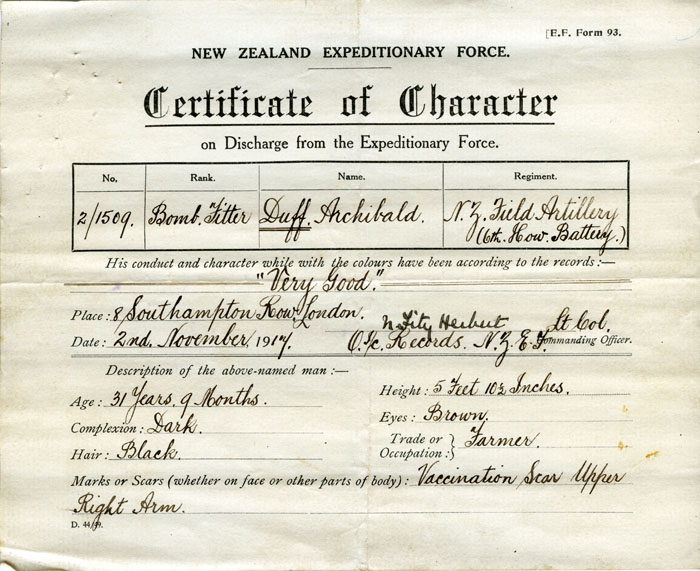 [E.F. Form 93.
NEW ZEALAND EXPEDITIONARY FORCE.
Certificate of Character
on Discharge from the Expeditionary Force.
No. Rank. Name. Regiment.
2/1509. Bomb. Fitter Duff. Archibald. N.Z. Field Artillery
(6th. How. Battery.)
His conduct and character while with the colours have been according to the records :—
"Very Good."
Place : 8 Southampton Row, London.
Fitz Herbert Lt Col.
Date : 2nd. November, 1917. O. i/c. Records. N.Z.E.F. Commanding Officer.
Description of the above-named man :—
Age : 31 Years, 9 Months. Height : 5 Feet 10½ Inches.
Complexion : Dark. Eyes : Brown.
Hair : Black. Trade or Occupation : } Farmer.
Marks or Scars (whether on face or other parts of body) : Vaccination Scar Upper
Right Arm.